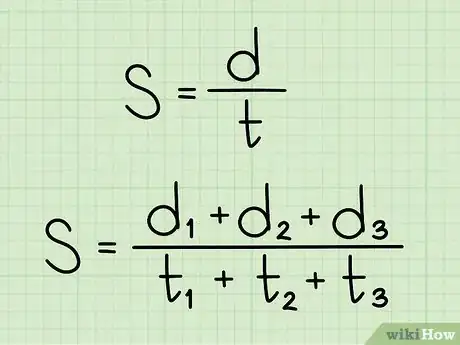 S = d / t
S = d₁ + d₂ + d₃ / t₁ + t₂ + t₃
wikiHow